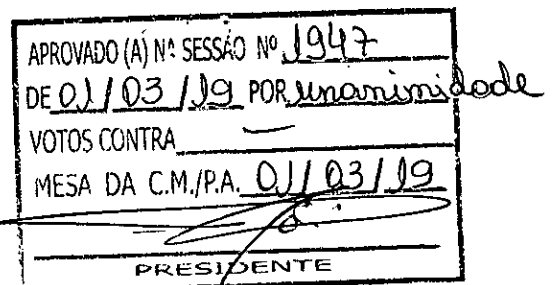 APROVADO (A) Nª SESSÃO Nº 1947
DE 01/03/19 POR unanimidade
VOTOS CONTRA —
MESA DA C.M./P.A. 01/03/19
PRESIDENTE